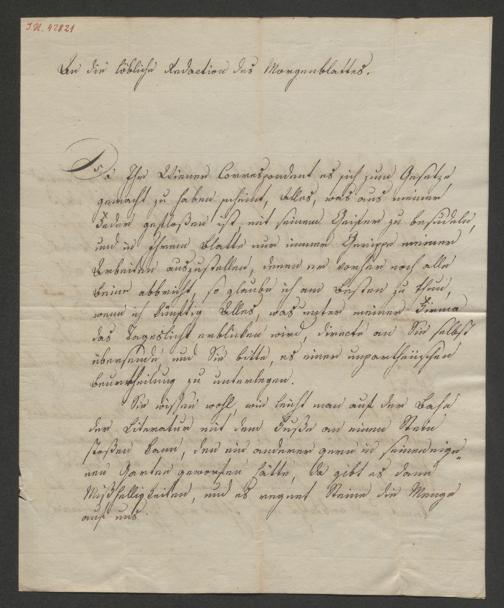 I.N. 42821
An die löbliche Redaction des Morgenblattes.
Da Ihr Wiener Correspondent es sich zum Gesetze
gemacht zu haben scheint, Alles, was aus meiner
Feder geflossen ist, mit seinem Geifer zu besudeln,
und in Ihrem Blatte nur immer Gerippe meiner
Arbeiten auszustellen, denen er vorher noch alle
Beine abbricht, so glaube ich am Besten zu thun,
wenn ich künftig Alles, was unter meiner Firma
das Tageslicht erblicken wird, directe an Sie selbst
übersende und Sie bitte, es einer unpartheiischen
Beurtheilung zu unterlegen.
Sie wissen wohl, wie leicht man auf der Bahn
der Literatur mit dem Fuße an einen Stein
stoßen kann, den ein anderer gern in seinen eige-
nen Garten geworfen hätte, da gibt es dann
Mißhelligkeiten, und es regnet Steine die Menge
auf uns.